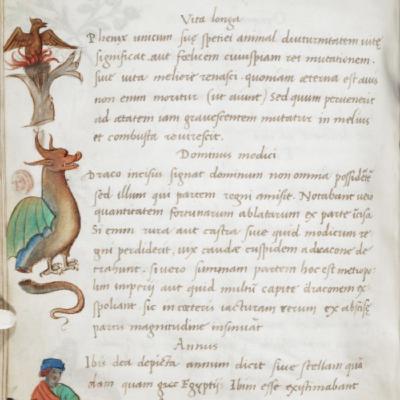 Vita longa
Phenix unicum suę spetiei animal diuturnitatem vitę
significat. aut fœlicem cuiuspiam rei mutationem.
sive vita meliore renasci. quoniam æterna est avis
non enim moritur (ut aiunt) Sed quum pervenerit
ad ætatem iam gravescentem mutatur in melius
et combusta reviviscit.
Dominus modici
Draco incisus signat dominum non omnia possidẽtẽ
sed illum qui partem regni amisit. Notabant vero
quantitatem fortunarum ablatarum ex parte icisa
Si enim rura aut castra sive quid modicum re
gni perdiderit, vix caudæ cuspidem a dracone de
trahunt. Si vero summam partem hoc est metropo
lim imperii aut quid multũ capite draconem ex
spoliant sic in cæteris iacturam rerum ex abscisę
partis magnitudine insinuãt
Annus
Ibis dea depicta annum dicit sive stellam quã
dam quam Egyptii Ibim esse existimabant